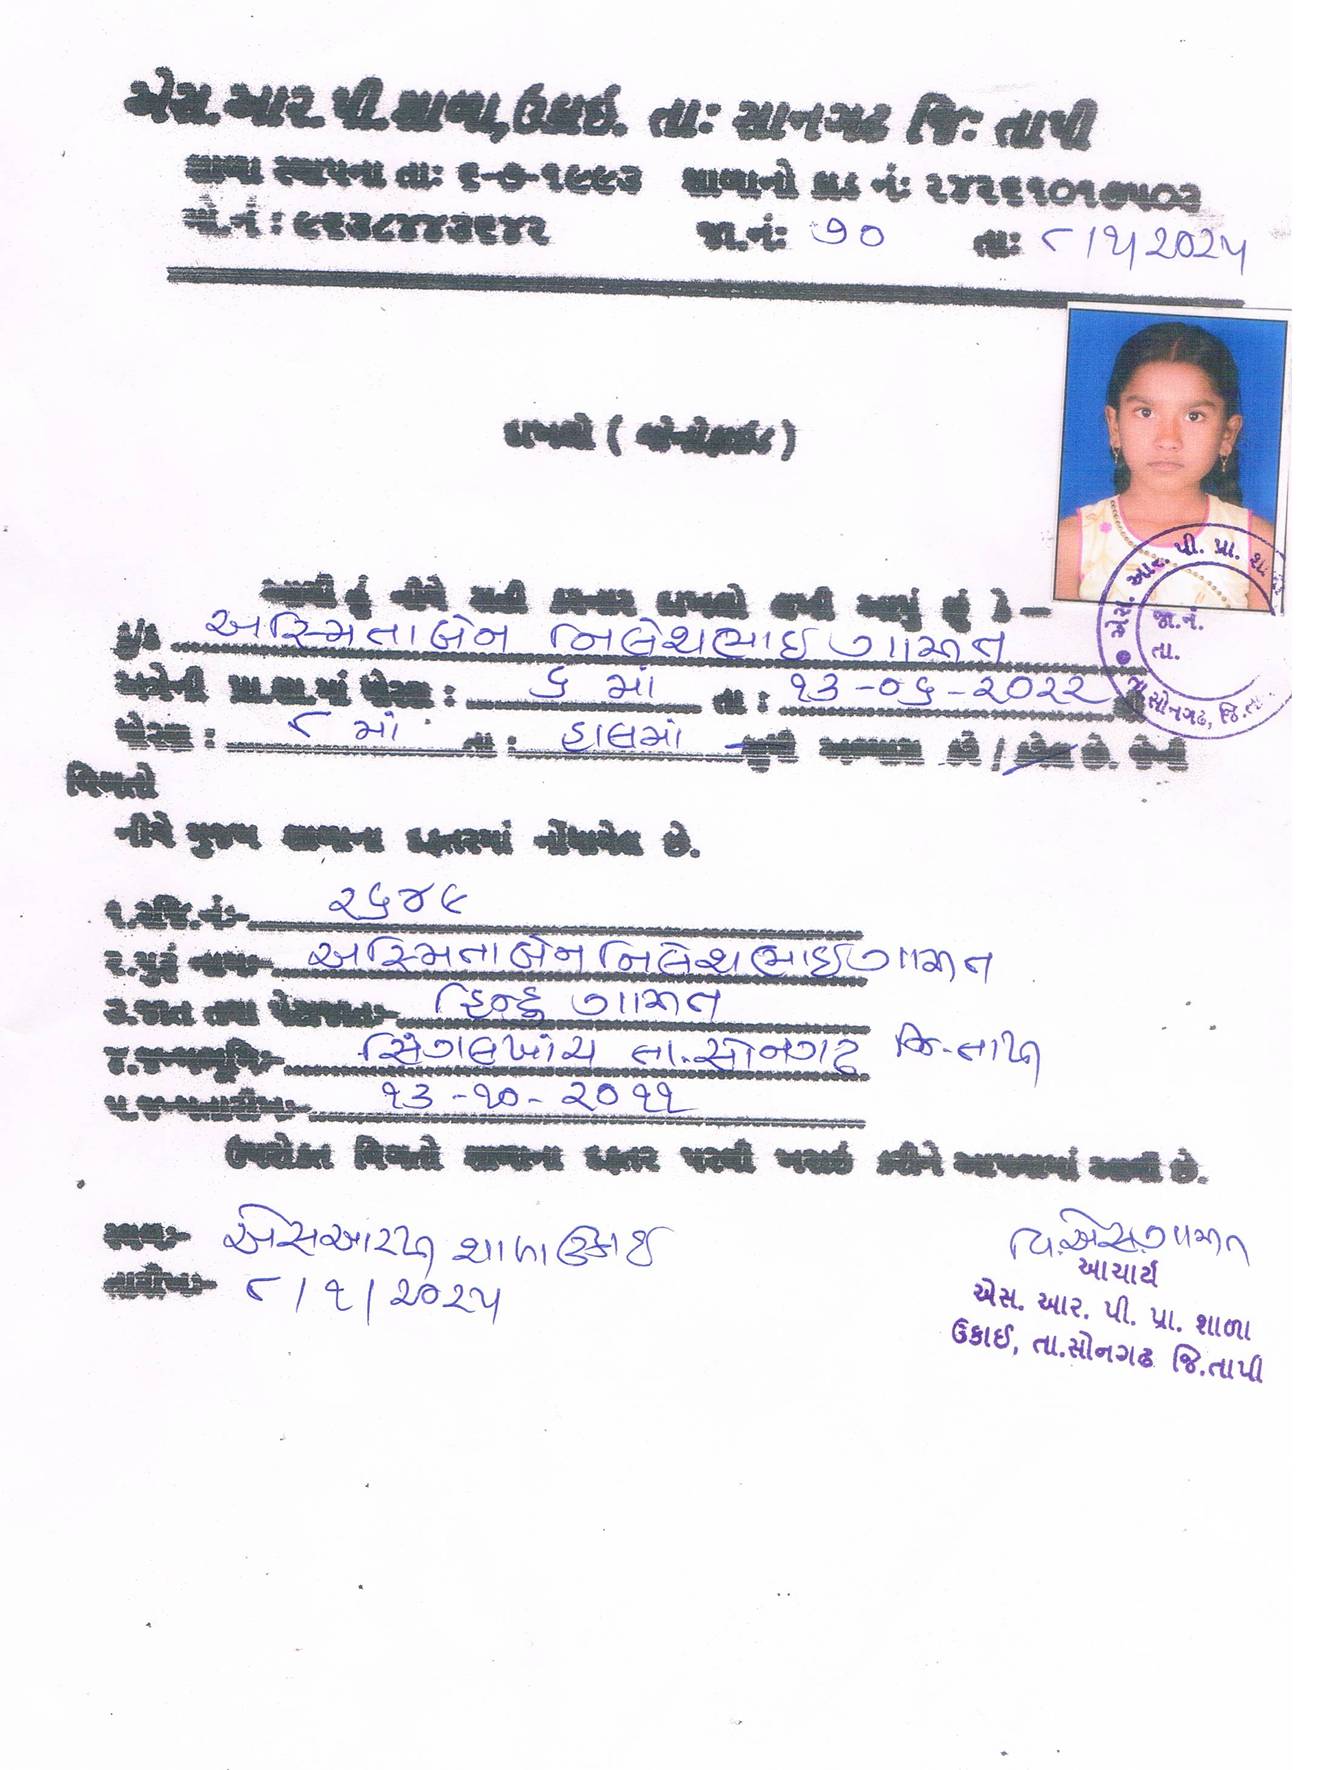 એસ.આર.પી.શાળા,ઉકાઇ. તા: સોનગઢ જિ: તાપી
શાળા સ્થાપના તા: ૬-૭-૧૯૯૩ શાળાનો કોડ નં: ૨૪૨૬૧૦૧૭૫૦૨
મો.નં : જા.નં: ૭૦ તા: ૮/૧/૨૦૨૫
દાખલો ( બોનોફાઈડ )
આથી હું નીચે સહી કરનાર દાખલો લખી આપું છું કે –
કુ/ક અસ્મિતાબેન નિલેશભાઇ ગામીત
અત્રેની પ્રા.શા.માં ધોરણ : ૬ માં તા : ૧૩-૦૬-૨૦૨૨ થી
ધોરણ : ૮ માં તા : હાલમાં સુધી અભ્યાસ કરે / કરેલ છે. જેની
વિગતો
નીચે મુજબ શાળાના દફતરમાં નોંધાયેલ છે.
૧.રજિ.નં:- ૨૬૪૯
૨.પુરું નામ:- અસ્મિતાબેન નિલેશભાઇ ગામીત
૩.જાત તથા પેટાજાત:- હિન્દુ ગામીત
૪.જન્મભૂમિ:- સિંગલખાંચ તા.સોનગઢ જિ-તાપી
૫.જન્મતારીખ:- ૧૩-૧૦-૨૦૧૧
ઉપરોક્ત વિગતો શાળાના દફતર પરથી ખરાઇ કરીને આપવામાં આવી છે.
સ્થળ:- એસઆરપી શાળા ઉકાઈ
તારીખ:- ૮/૧/૨૦૨૫
વિ.એસ.ગામીત
આચાર્ય
એસ. આર. પી. પ્રા. શાળા
ઉકાઈ, તા.સોનગઢ જિ.તાપી
એસ. આર. પી. પ્રા. શા
જા.નં.
તા.
સોનગઢ, જિ.તા